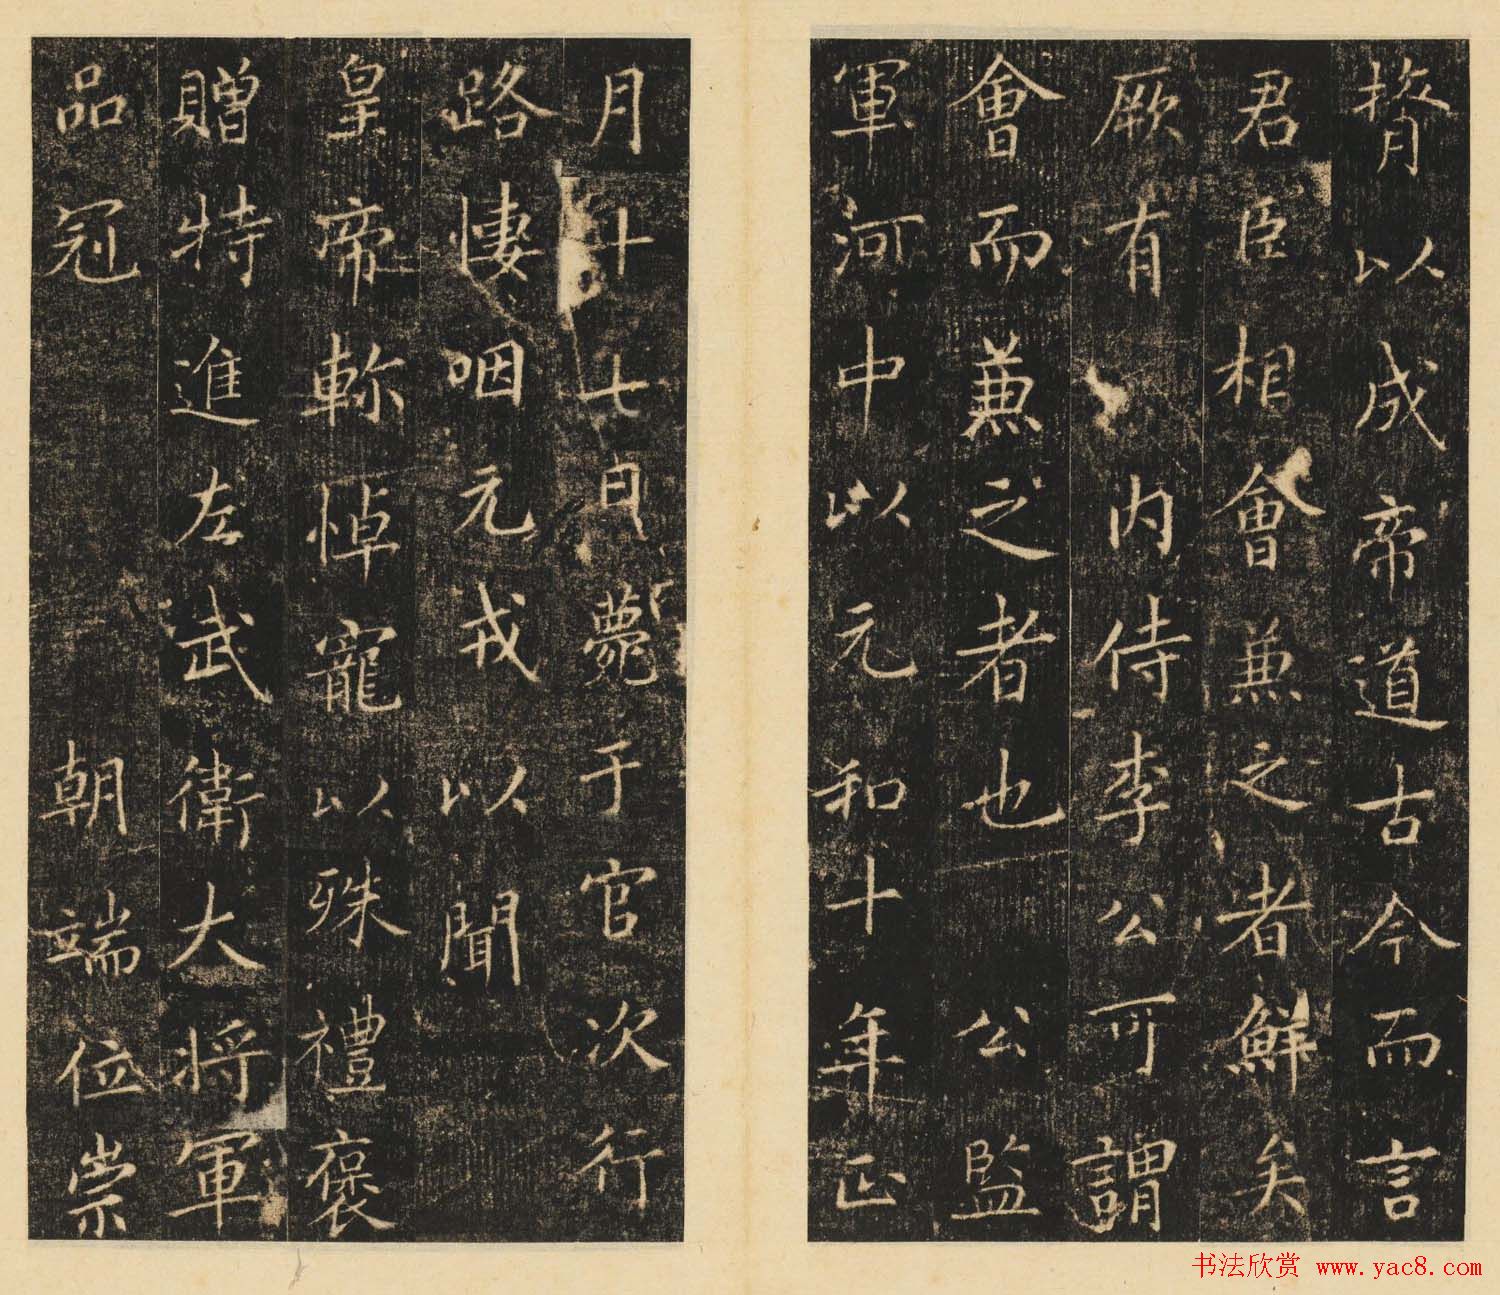 膂以成帝道古今而言
君臣相會兼之者鮮矣
厥有内侍李公可謂
會而兼之者也公監
軍河中以元和十年正
月十七日薨于官次行
路悽咽元戎以聞
皇帝軫悼寵以殊禮褒
贈特進左武衛大將軍
品冠朝端位崇
书法欣赏 www.yac8.com